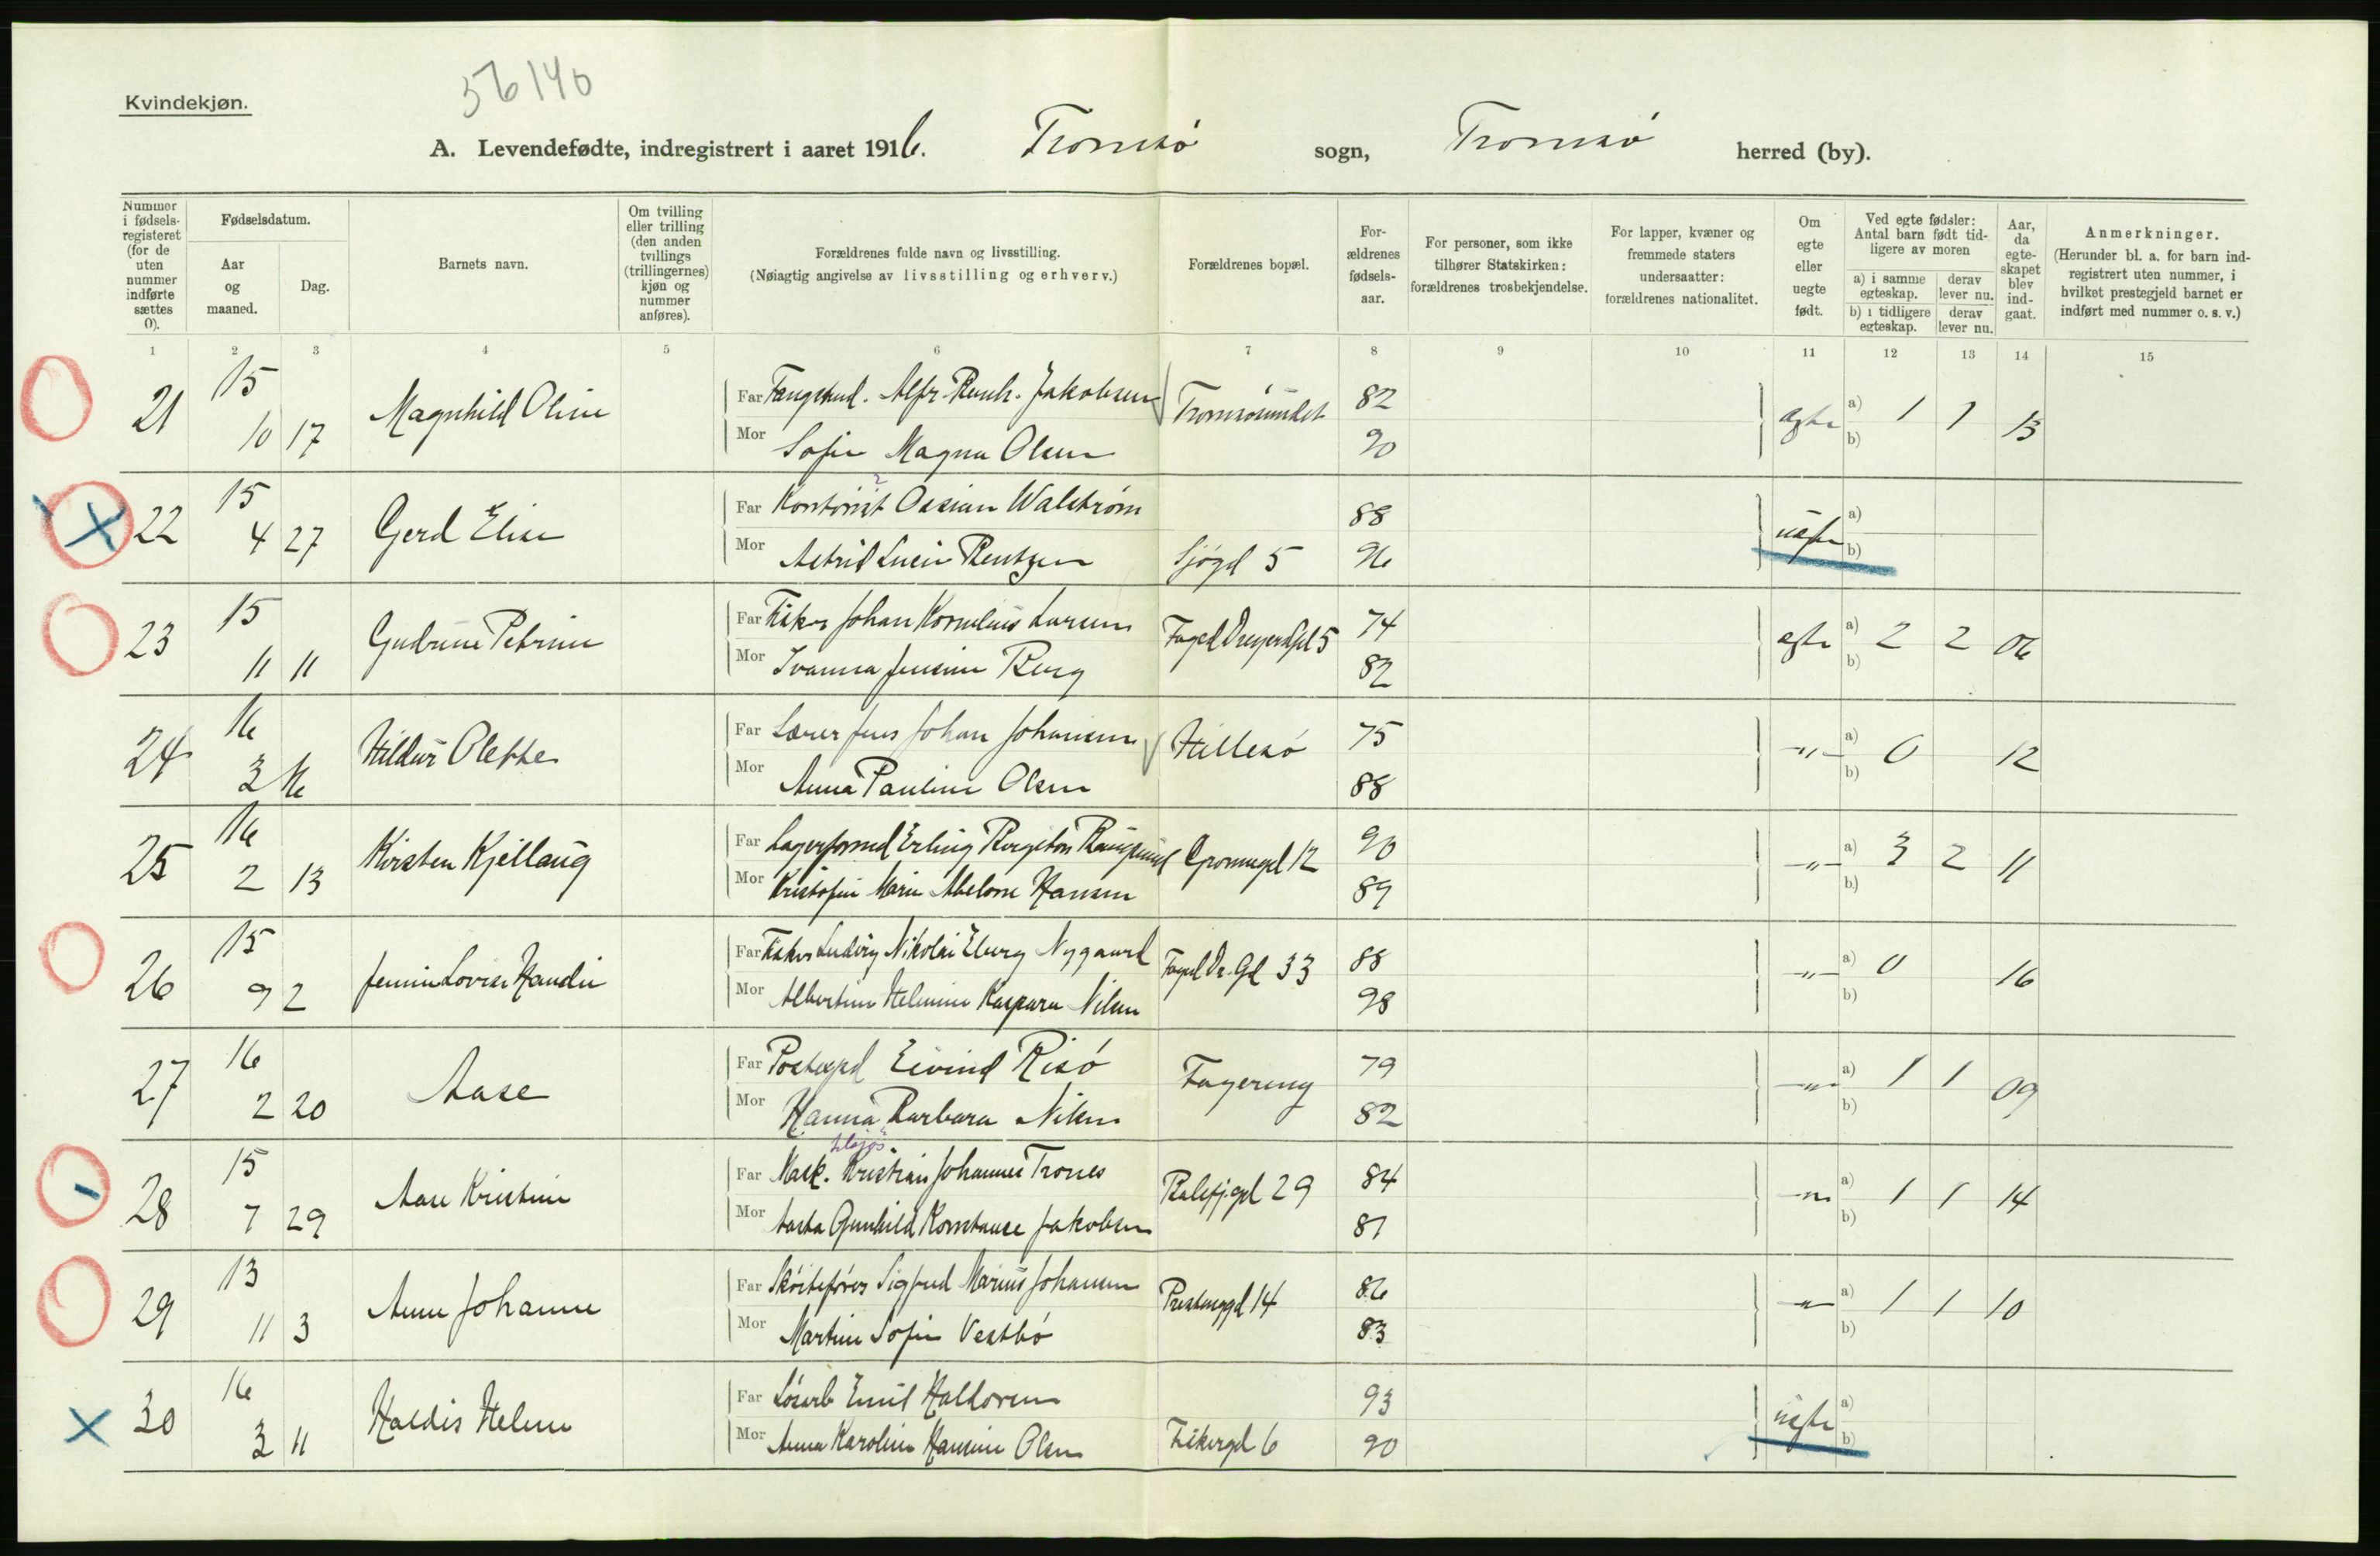 56140
Kvindekjøn.
A. Levendefødte, indregistrert i aaret 1916. Tromsö sogn, Tromsö herred (by).
Nummer i fødsels-registeret (for de uten nummer indførte sættes 0).
Fødselsdatum.
Aar og maaned.
Dag.
Barnets navn.
Om tvilling eller trilling (den anden tvillings (trillingernes) kjøn og nummer anføres).
Forældrenes fulde navn og livsstilling.
(Nøiagtig angivelse av livsstilling og erhverv.)
Forældrenes bopæl.
For-ældrenes fødsels-aar.
For personer, som ikke tilhører Statskirken: forældrenes trosbekjendelse.
For lapper, kvæner og fremmede staters undersaatter: forældrenes nationalitet.
Om egte eller uegte født.
Ved egte fødsler: Antal barn født tid-ligere av moren
a) i samme egteskap. derav lever nu.
b) i tidligere egteskap. derav lever nu.
Aar, da egte-skapet blev ind-gaat.
Anmerkninger.
(Herunder bl. a. for barn ind-registrert uten nummer, i hvilket prestegjeld barnet er indført med nummer o. s. v.)
1 2 3 4 5 6 7 8 9 10 11 12 13 14 15
21 15 10 17 Magnhild Oline Far Fangstmd. Alfr. Bernh. Jakobsen Tromsösundet 82 egte a) 1 1 13
Mor Sofie Magna Olsen 90 b)
22 15 4 27 Gerd Elise Far Kontorist Ossian Walström 88 uegte a)
Mor Astrid Lucie Bentzen Sjögd 5 96 b)
23 15 11 11 Gudrun Petrine Far Fisker Johan Kornelius Larsen Foged Dreyersgd 5 74 egte a) 2 2 06
Mor Ivanna Jensine Berg 82 b)
24 16 3 16 Hildur Olette Far Lærer Jens Johan Johansen Hillesö 75 -"- a) 0 12
Mor Anna Pauline Olsen 88 b)
25 16 2 13 Kirsten Kjellaug Far Lagerformd Erling Bergiton Grönnegd 12 90 -"- a) 3 2 11
Mor Kristofine Marie Abelone Hansen 89 b)
26 15 9 2 Jennie Lovise Haudie Far Fisker Ludvig Nikolai Eberg Nygaard Foged Dr. Gd 33 88 -"- a) 0 16
Mor Albertine Helmine Kaspara Nilsen 98 b)
27 16 2 20 Aase Far Postexpd Eivind Risö Fagereng 79 -"- a) 1 1 09
Mor Hanna Barbara Nilsen 82 b)
28 15 7 29 Aase Kristine Far Mask. Kristian Johannes Trones Balsfj.gd 29 84 -"- a) 1 1 14
Mor Aasta Gunhild Konstance Jakobsen 87 b)
29 13 11 3 Anne Johanne Far Skóitefórer Sigfred Marius Johansen Prestenggd 14 86 -"- a) 1 1 10
Mor Martine Sofie Vestbö 83 b)
30 16 3 11 Haldis Helene Far Lösarb Emil Halvorsen 93 uegte a)
Mor Anna Karoline Hansine Olsen Fiskergd 6 90 b)